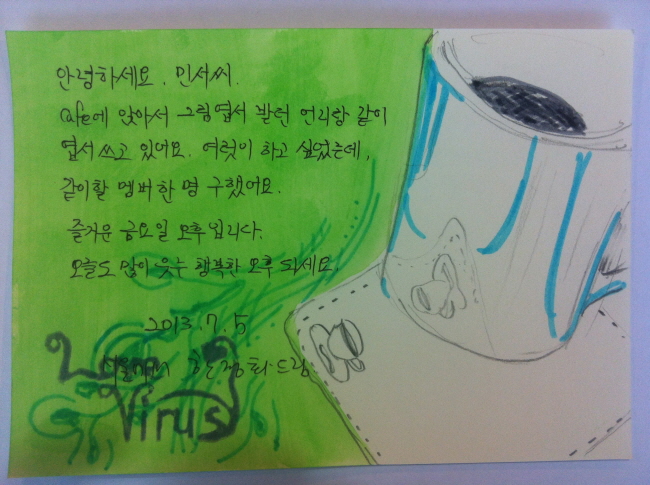 안녕하세요. 민서씨.
Cafe에 앉아서 그림엽서 발런 언리랑 같이
엽서 쓰고 있어요. 여럿이 하고 싶었는데,
같이할 멤버 한 명 구했어요.
즐거운 금요일 오후 입니다.
오늘도 많이 웃는 행복한 오후 되세요.
2013.7.5
서울에서 한정화드림
Virus